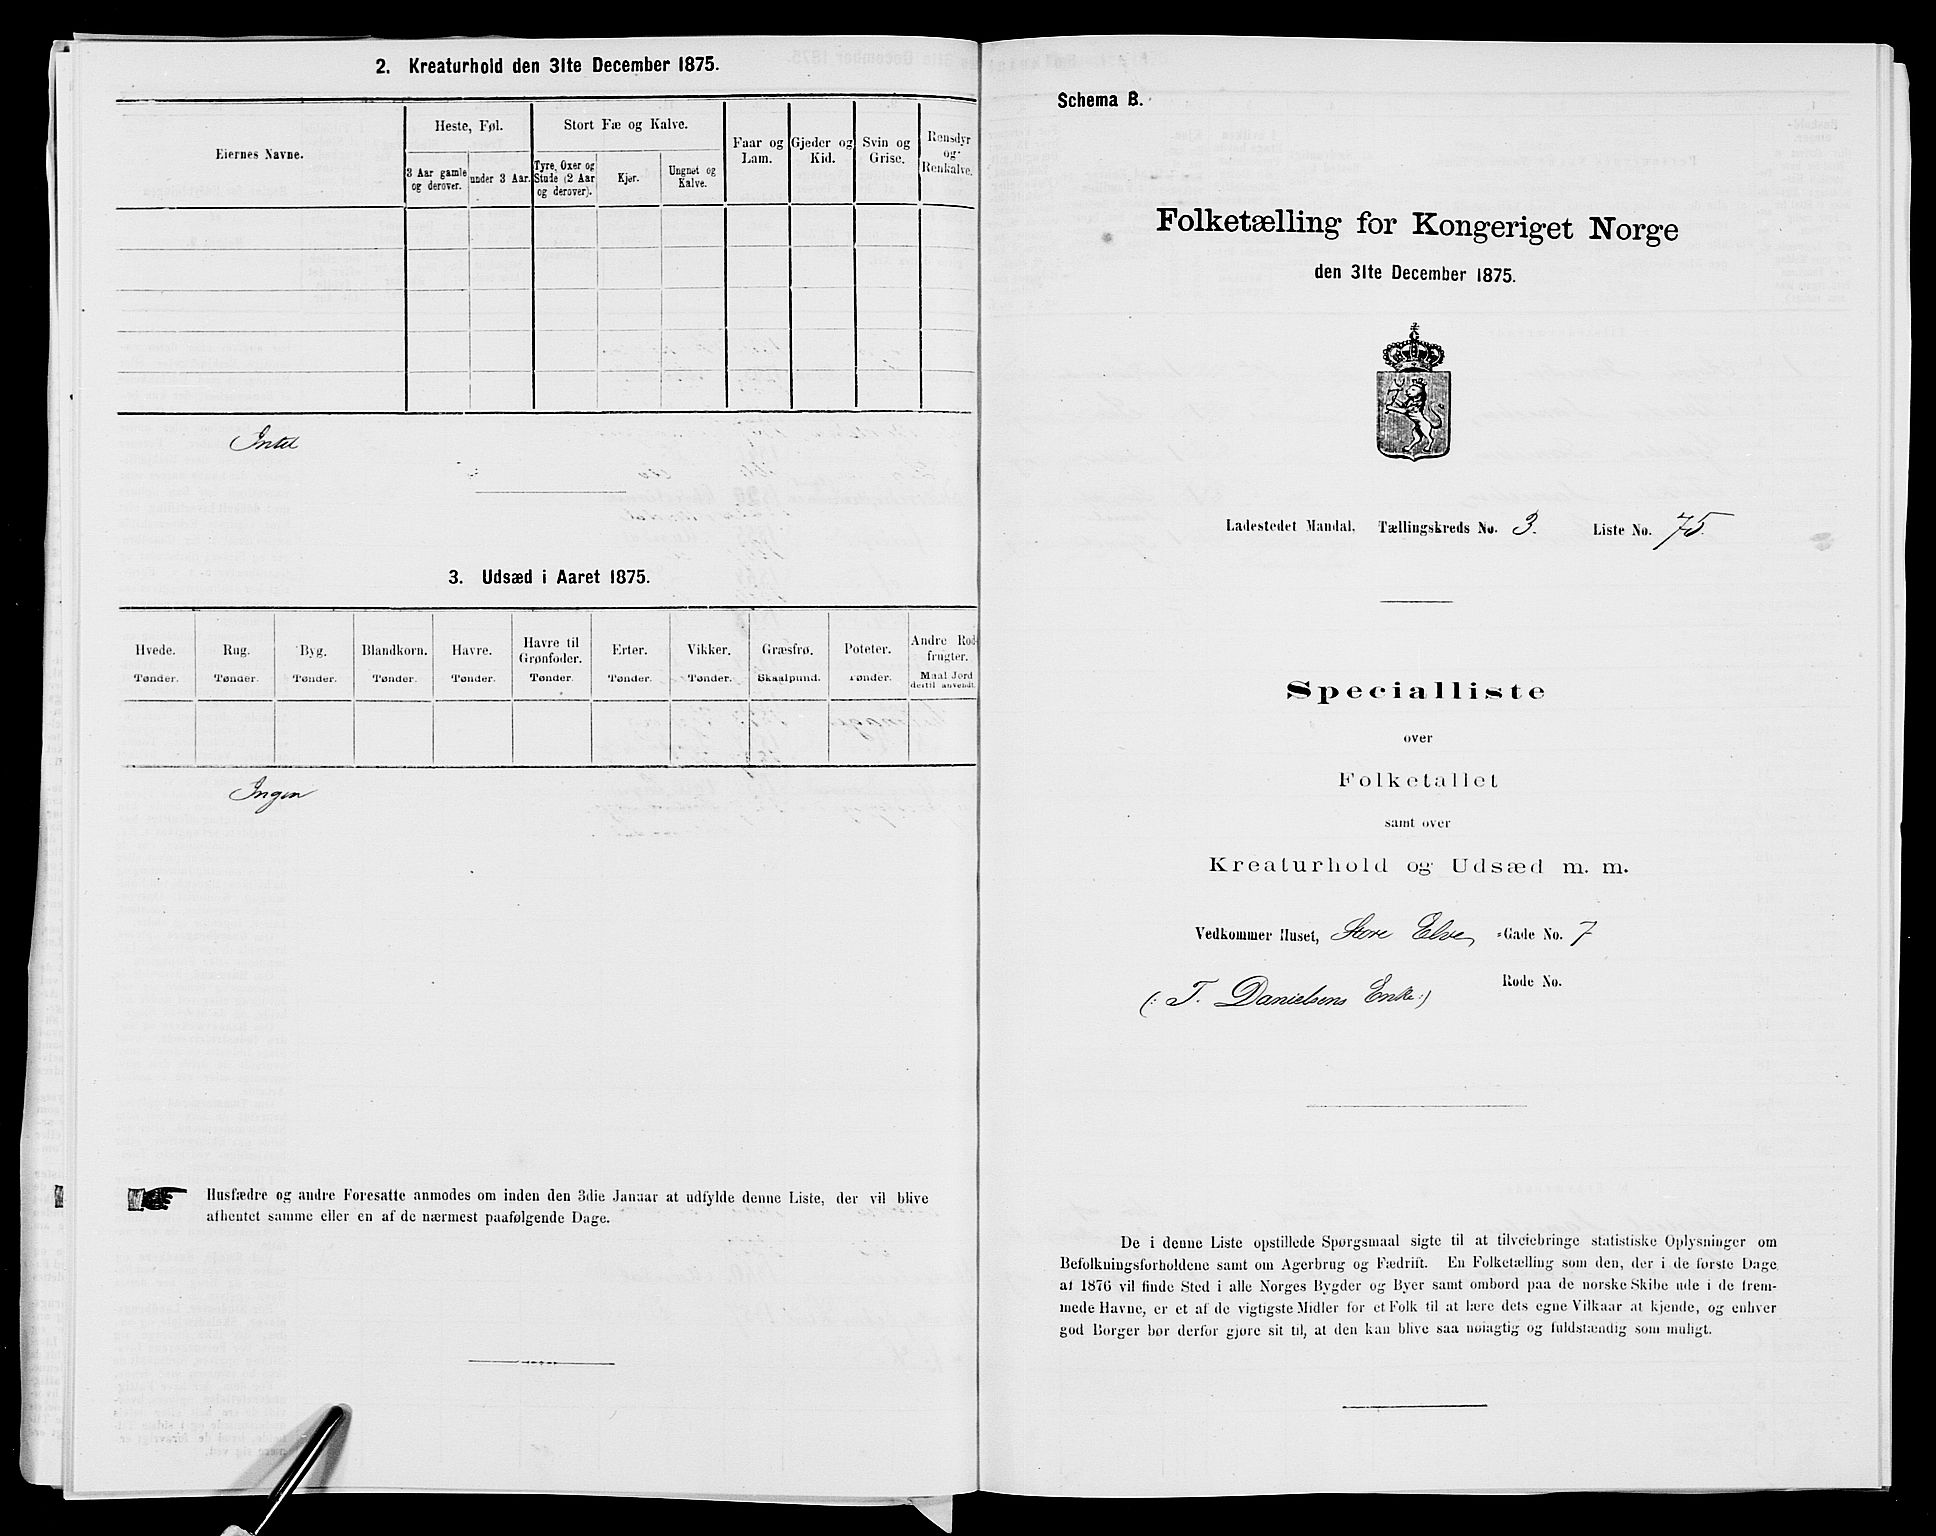 2. Kreaturhold den 31te December 1875.
Eiernes Navne.
Heste, Føl.
Stort Fæ og Kalve.
Faar og Lam.
Gjeder og Kid.
Svin og Grise.
Rensdyr og Renkalve.
3 Aar gamle og derover.
under 3 Aar.
Tyre, Oxer og Stude (2 Aar og derover).
Kjør.
Ungnøt og Kalve.
Intet
3. Udsæd i Aaret 1875.
Hvede. Tønder.
Rug. Tønder.
Byg. Tønder.
Blandkorn. Tønder.
Havre. Tønder.
Havre til Grønfoder. Tønder.
Erter. Tønder.
Vikker. Tønder.
Græsfrø. Skaalpund.
Poteter. Tønder.
Andre Rodfrugter. Maal Jord dertil anvendt.
Ingen
Husfædre og andre Foresatte anmodes om inden den 3die Januar at udfylde denne Liste, der vil blive
afhentet samme eller en af de nærmest paafølgende Dage.
Schema B.
Folketælling for Kongeriget Norge
den 31te December 1875.
Ladestedet Mandal. Tællingskreds No. 3. Liste No. 75.
Specialliste
over
Folketallet
samt over
Kreaturhold og Udsæd m. m.
Vedkommer Huset, Store Elve -Gade No. 7
Rode No.
(: T. Danielsens Enke :)
De i denne Liste opstillede Spørgsmaal sigte til at tilveiebringe statistiske Oplysninger om
Befolkningsforholdene samt om Agerbrug og Fædrift. En Folketælling som den, der i de første Dage
af 1876 vil finde Sted i alle Norges Bygder og Byer samt ombord paa de norske Skibe ude i de frem-
mede Havne, er et af de vigtigste Midler for et Folk til at lære dets egne Vilkaar at kjende, og enhver
god Borger bør derfor gjøre sit til, at den kan blive saa nøiagtig og fuldstændig som muligt.